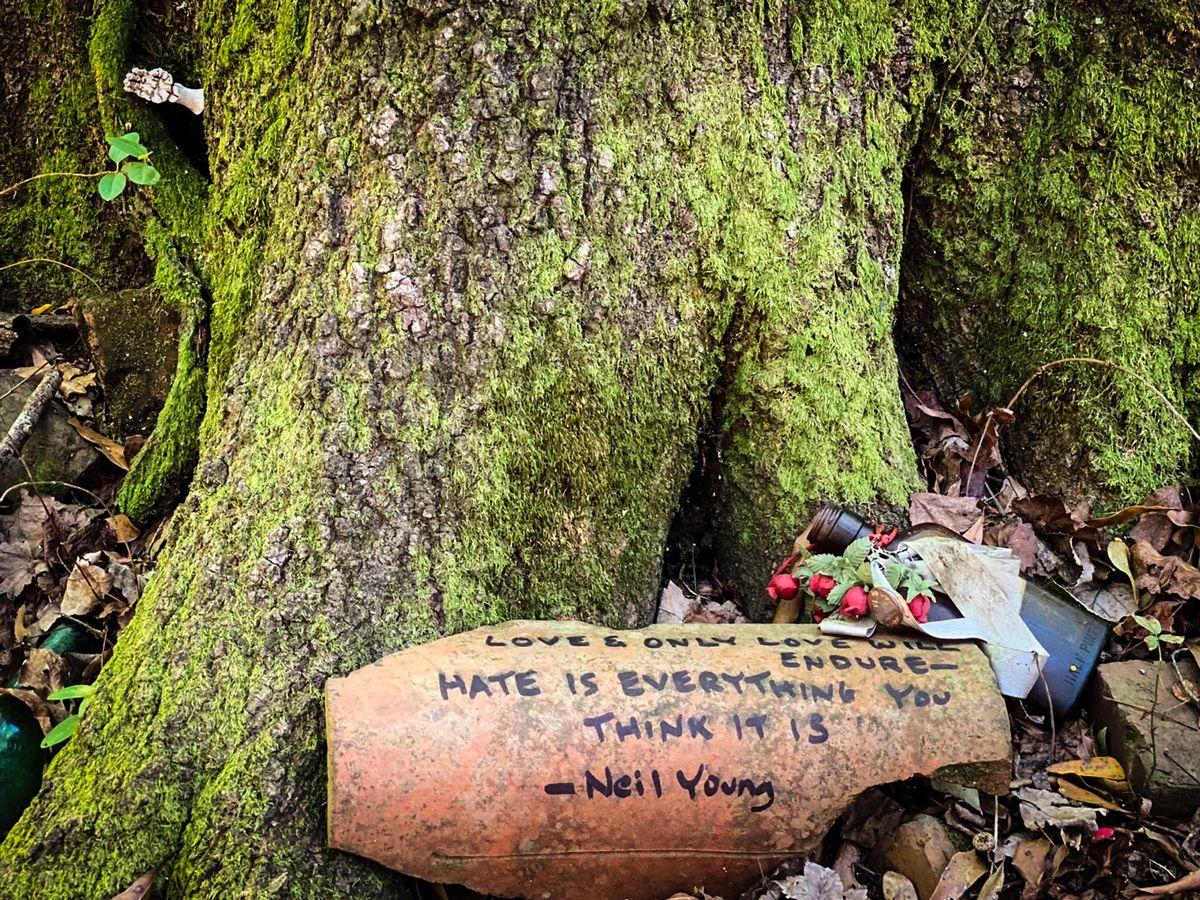 LOVE & ONLY LOVE WILL
ENDURE—
HATE IS EVERYTHING YOU
THINK IT IS
—Neil Young
HALF PINT